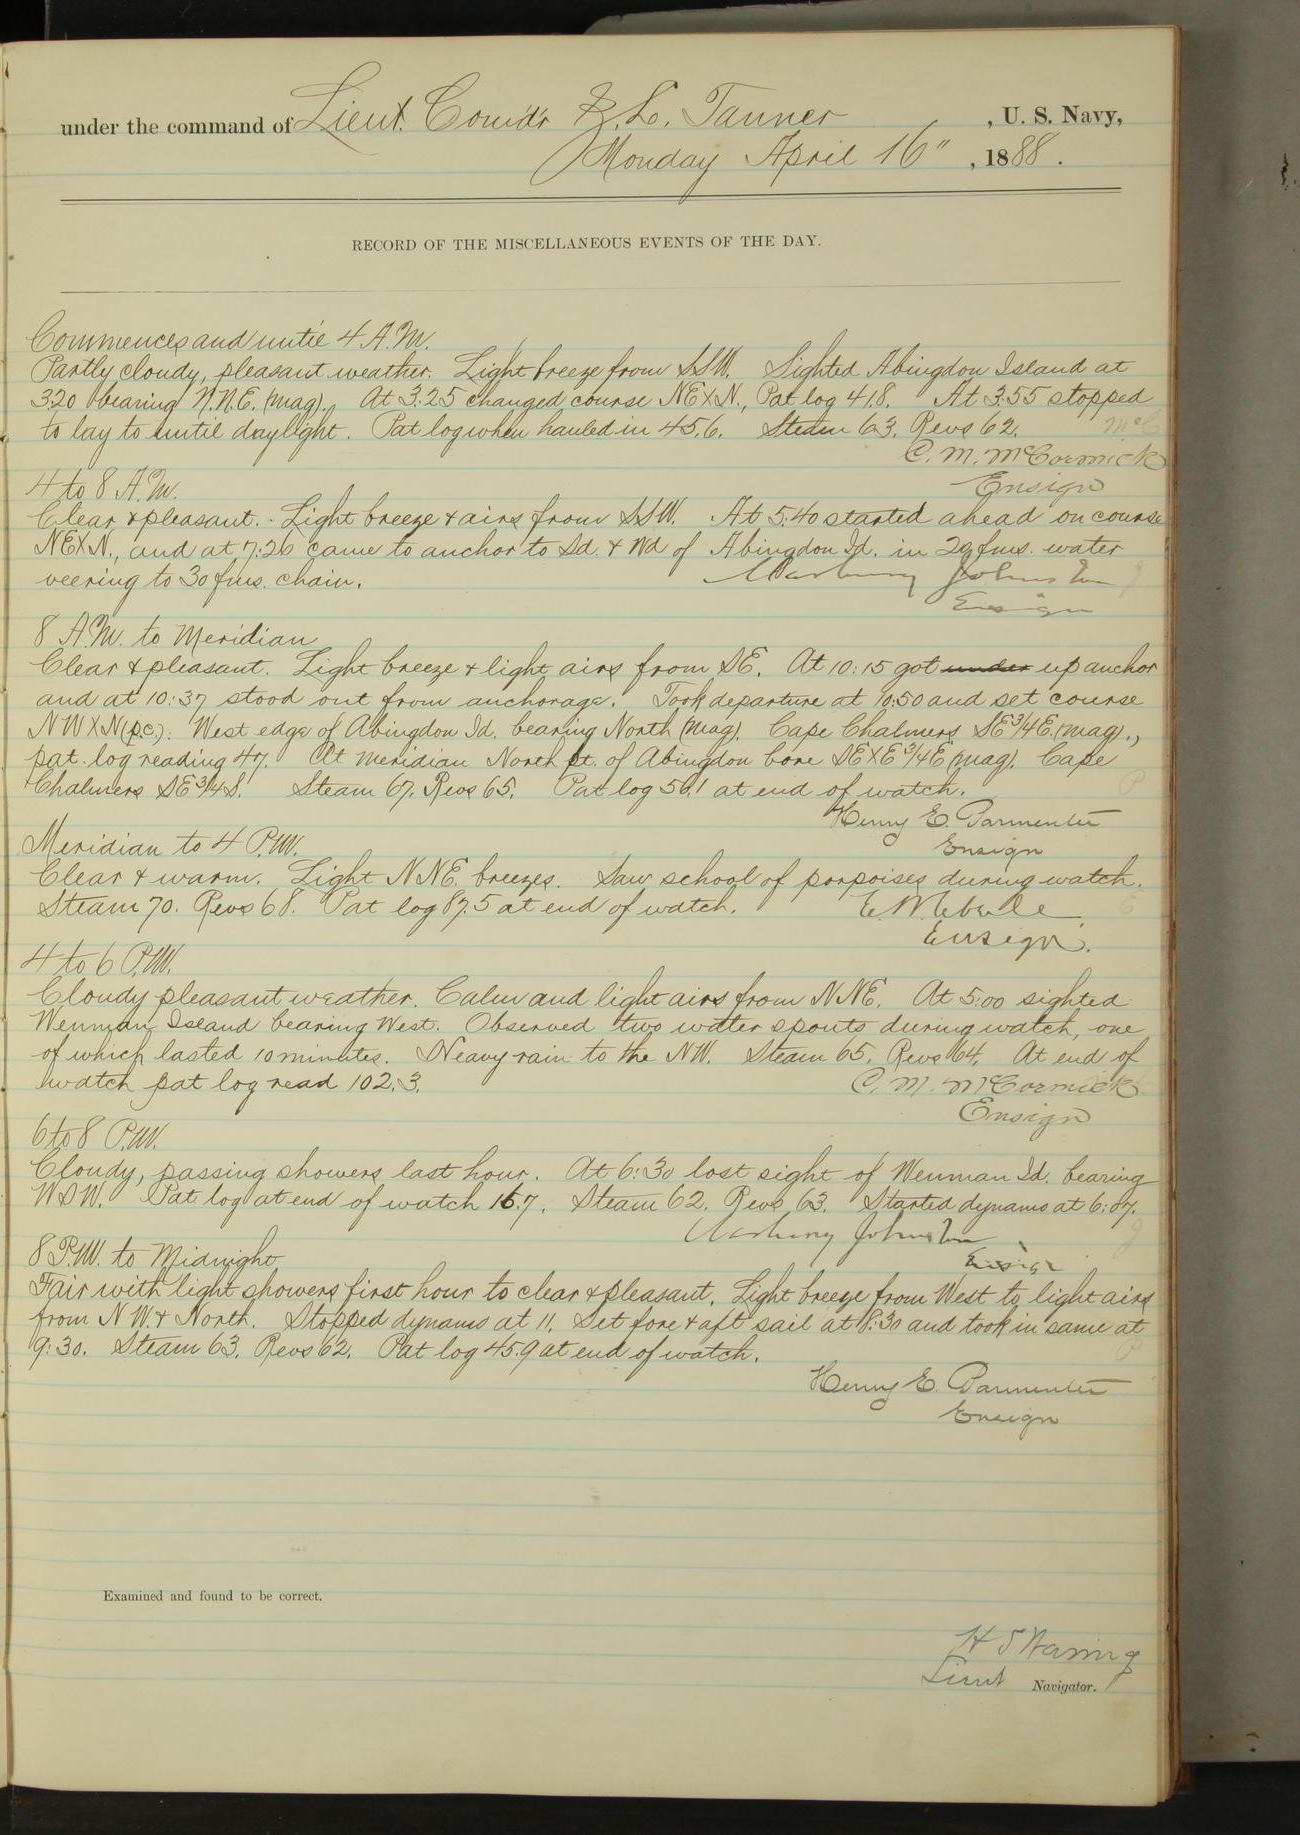 under the command of Lieut. Comd'r Z. L. Tanner, U. S. Navy,
Monday April 16", 1888.
RECORD OF THE MISCELLANEOUS EVENTS OF THE DAY.
Commences and until 4 A.M.
Partly cloudy, pleasant weather. Light breeze from SSW. Sighted Abingdon Island at
3:20 bearing N.N.E. (mag). At 3:25 changed course NEXN., Pat log 41.8. At 3:55 stopped
to lay to until daylight. Pat log when hauled in 45.6. Steam 63. Revs 62. McC
C. M. McCormick
Ensign
4 to 8 A.M.
Clear & pleasant. Light breeze & airs from SSW. At 5:40 started ahead on course
NEXN., and at 7:26 came to anchor to Sd. & Wd of Abingdon Id. in 20 fms. water
veering to 30 fms. chain. Marbury Johnston J
Ensign
8 A.M. to Meridian
Clear & pleasant. Light breeze & light airs from SE. At 10:15 got under up anchor
and at 10:37 stood out from anchorage. Took departure at 10:50 and set course
NWXN (p.c.). West edge of Abingdon Id. bearing North (mag). Cape Chalmers SE 3/4 E. (mag).,
pat. log reading 47. At meridian North pt. of Abingdon bore SEXE 3/4 E (mag). Cape
Chalmers SE 3/4 S. Steam 67. Revs 65. Pat log 56.1 at end of watch. P
Henry E. Parmenter
Ensign
Meridian to 4 P.M.
Clear & warm. Light NNE. breezes. Saw school of porpoises during watch.
Steam 70. Revs 68. Pat log 87.5 at end of watch. E. W. Eberle E
Ensign.
4 to 6 P.M.
Cloudy pleasant weather. Calm and light airs from NNE. At 5:00 sighted
Wenman Island bearing West. Observed two water spouts during watch, one
of which lasted 10 minutes. Heavy rain to the NW. Steam 65. Revs 64. At end of
watch pat log read 102.3. C. M. McCormick
Ensign
6 to 8 P.M.
Cloudy, passing showers last hour. At 6:30 lost sight of Wenman Id. bearing
WSW. Pat log at end of watch 16.7. Steam 62. Revs 63. Started dynamo at 6:07.
Marbury Johnston J
Ensign
8 P.M. to Midnight
Fair with light showers first hour to clear & pleasant. Light breeze from West to light airs
from NW. & North. Stopped dynamo at 11. Set fore & aft sail at 8:30 and took in same at
9:30. Steam 63. Revs 62. Pat log 45.9 at end of watch. P
Henry E. Parmenter
Ensign
Examined and found to be correct.
H S Waring
Lieut Navigator.